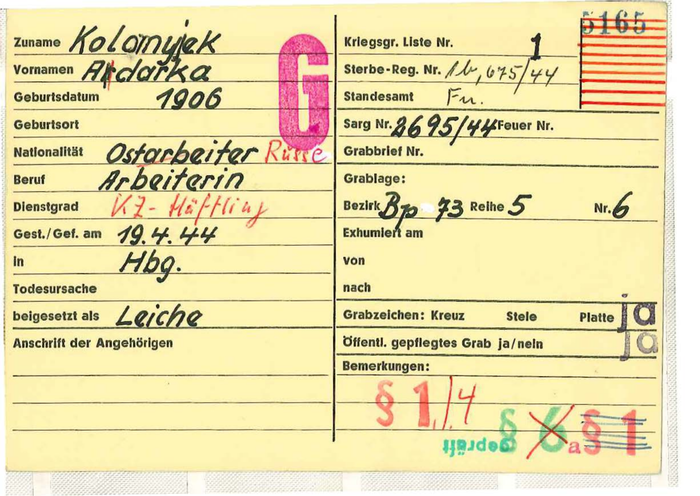 5165
Zuname Kolomyjek
Vornamen Ardarka
Geburtsdatum 1906
Geburtsort
Nationalität Ostarbeiter Russe
Beruf Arbeiterin
Dienstgrad KZ-Häftling
Gest./Gef. am 19.4.44
in Hbg.
Todesursache
beigesetzt als Leiche
Anschrift der Angehörigen
G
Kriegsgr. Liste Nr. 1
Sterbe-Reg. Nr. 1b, 675/44
Standesamt Fu.
Sarg Nr. 2695/44 Feuer Nr.
Grabbrief Nr.
Grablage:
Bezirk Bp 73 Reihe 5 Nr. 6
Exhumiert am
von
nach
Grabzeichen: Kreuz Stele Platte ja
Öffentl. gepflegtes Grab ja/nein ja
Bemerkungen:
§ 1./4
geprüft § 6a § 1